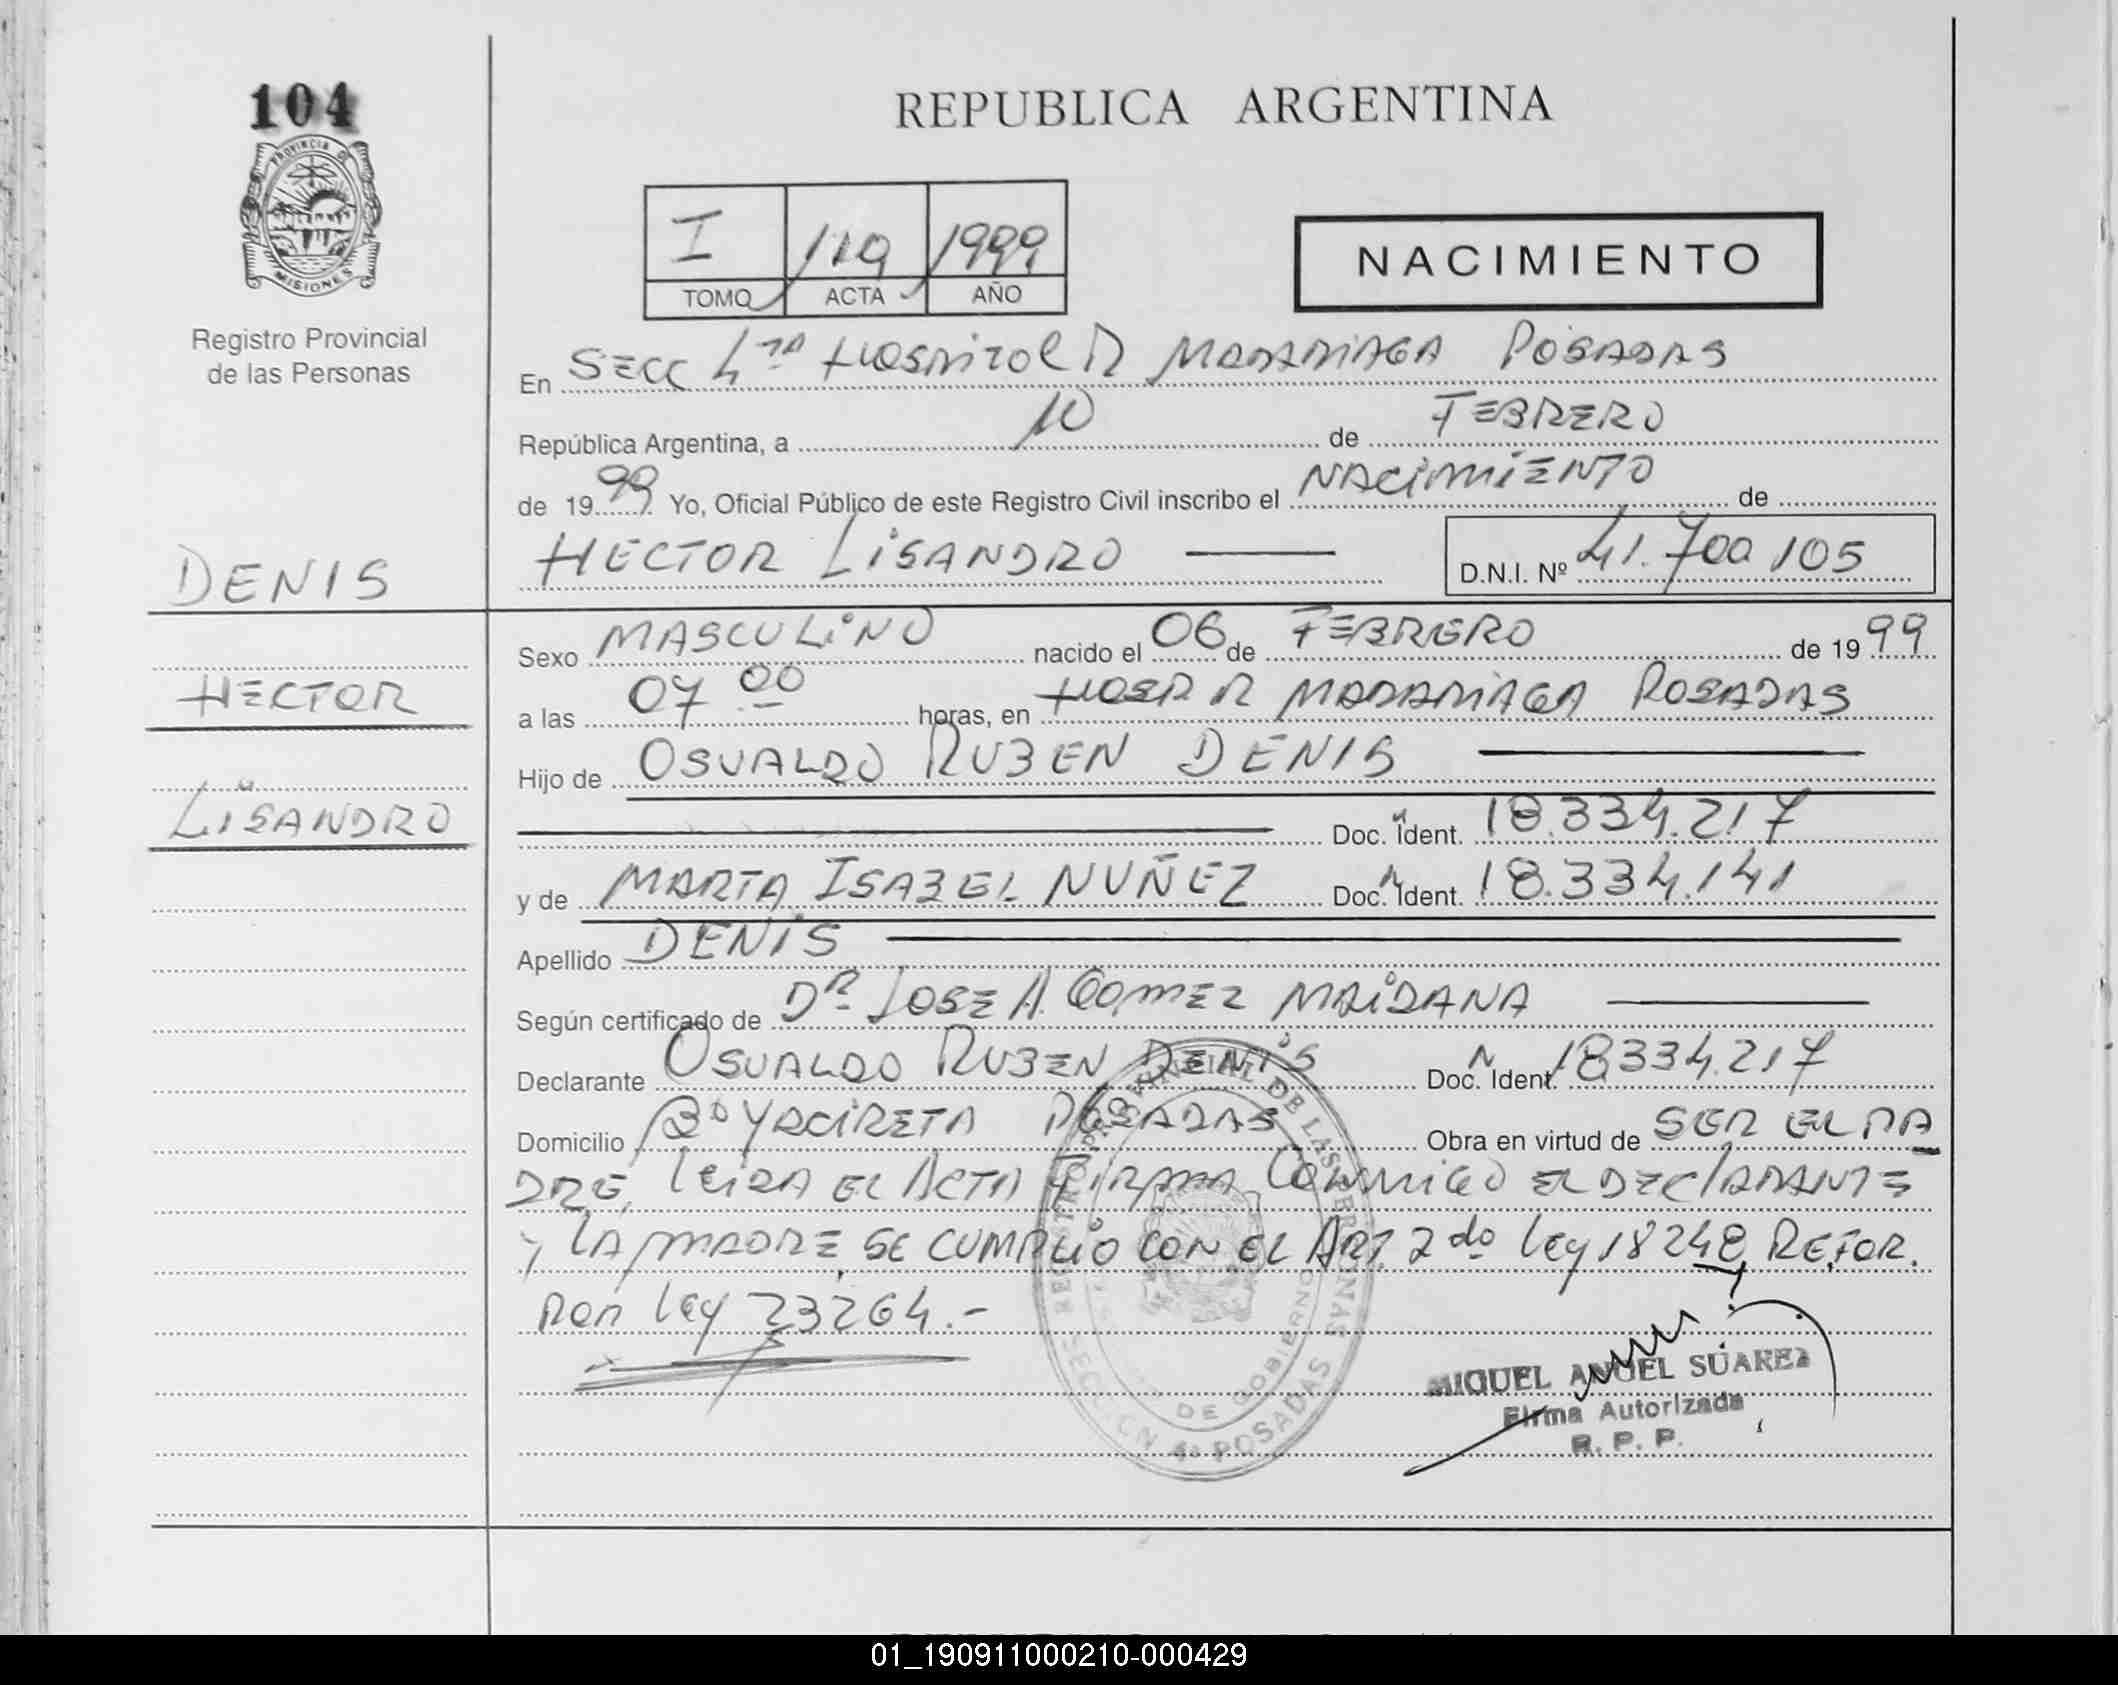 104
PROVINCIA DE
MISIONES
Registro Provincial
de las Personas
DENIS
HECTOR
LISANDRO
REPUBLICA ARGENTINA
I 119 1999
TOMO ACTA AÑO
NACIMIENTO
En SECC 4TA HOSPITAL R MADARIAGA POSADAS
República Argentina, a 10 de FEBRERO
de 1999 Yo, Oficial Público de este Registro Civil inscribo el NACIMIENTO de
HECTOR LISANDRO D.N.I. Nº 41.700 105
Sexo MASCULINO nacido el 06 de FEBRERO de 1999
a las 07 00 horas, en HOSP R MADARIAGA POSADAS
Hijo de OSVALDO RUBEN DENIS
Doc. Ident. 18.334.217
y de MARTA ISABEL NUÑEZ Doc. Ident. 18.334.141
Apellido DENIS
Según certificado de DR JOSE A. GOMEZ MAIDANA
Declarante OSVALDO RUBEN DENIS Doc. Ident. 18334.217
Domicilio Bº YACIRETA POSADAS Obra en virtud de SER EL PA
DRE, LEIDA EL ACTA FIRMA CONMIGO EL DECLARANTE
Y LA MADRE, SE CUMPLIO CON EL ART. 2do LEY 18248, REFOR.
POR LEY 23264.-
REGISTRO PROVINCIAL DE LAS PERSONAS
DE GOBIERNO
SECCION 4ª POSADAS
MIGUEL ANGEL SUAREZ
Firma Autorizada
R. P. P.
01_190911000210-000429